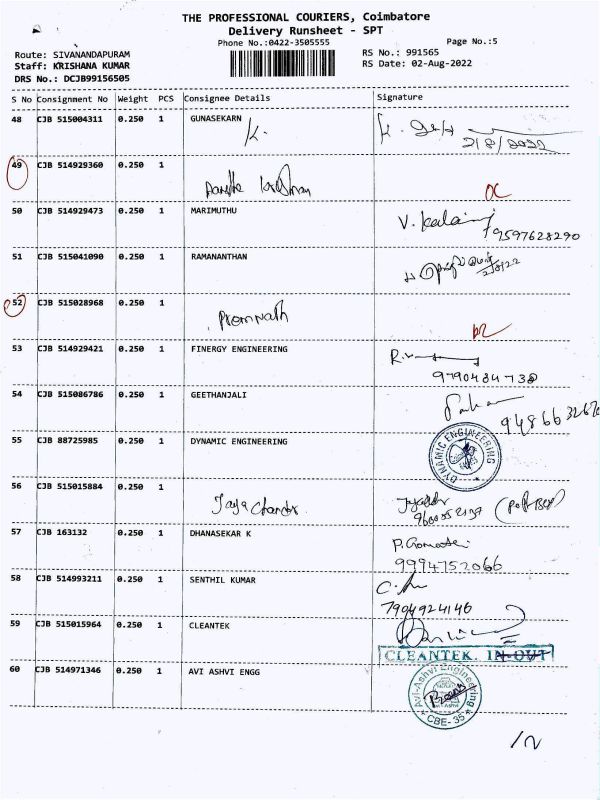 THE PROFESSIONAL COURIERS, Coimbatore
Delivery Runsheet - SPT
Phone No.:0422-3505555
Page No.:5
Route: SIVANANDAPURAM
Staff: KRISHANA KUMAR
DRS No.: DCJB99156505
RS No.: 991565
RS Date: 02-Aug-2022
S No Consignment No Weight PCS Consignee Details Signature
48 CJB 515004311 0.250 1 GUNASEKARN K.
2/8/2022
49 CJB 514929360 0.250 1
50 CJB 514929473 0.250 1 MARIMUTHU V. Kalai
9597628290
51 CJB 515041090 0.250 1 RAMANANTHAN
2/8/22
52 CJB 515028968 0.250 1
Premnath
53 CJB 514929421 0.250 1 FINERGY ENGINEERING
9790484738
54 CJB 515086786 0.250 1 GEETHANJALI
55 CJB 88725985 0.250 1 DYNAMIC ENGINEERING
DYNAMIC ENGINEERING
56 CJB 515015884 0.250 1
Jaya Chandr
57 CJB 163132 0.250 1 DHANASEKAR K
9994752066
58 CJB 514993211 0.250 1 SENTHIL KUMAR
7904924146
59 CJB 515015964 0.250 1 CLEANTEK
CLEANTEK IN-OUT
60 CJB 514971346 0.250 1 AVI ASHVI ENGG
Avi-Ashvi Engineering
CBE-35